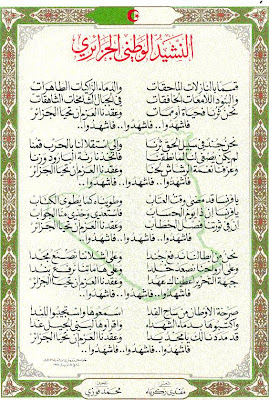 النشيد الوطني الجزائري
قسما بالنازلات الماحقات والدماء الزاكيات الطاهرات
والبنود اللامعات الخافقات في الجبال الشامخات الشاهقات
نحن ثرنا فحياة أو ممات وعقدنا العزم أن تحيا الجزائر
فاشهدوا.. فاشهدوا.. فاشهدوا..
نحن جند في سبيل الحق ثرنا وإلى استقلالنا بالحرب قمنا
لم يكن يصغى لنا لما نطقنا فاتخذنا رنة البارود وزنا
وعزفنا نغمة الرشاش لحنا وعقدنا العزم أن تحيا الجزائر
فاشهدوا.. فاشهدوا.. فاشهدوا..
يا فرنسا قد مضى وقت العتاب وطويناه كما يطوى الكتاب
يا فرنسا إن ذا يوم الحساب فاستعدي وخذي منا الجواب
إن في ثورتنا فصل الخطاب وعقدنا العزم أن تحيا الجزائر
فاشهدوا.. فاشهدوا.. فاشهدوا..
نحن من أبطالنا ندفع جندا وعلى أشلائنا نصنع مجدا
وعلى أرواحنا نصعد خلدا وعلى هاماتنا نرفع بندا
جبهة التحرير أعطيناك عهدا وعقدنا العزم أن تحيا الجزائر
فاشهدوا.. فاشهدوا.. فاشهدوا..
صرخة الأوطان من ساح الفدا اسمعوها واستجيبوا للندا
واكتبوها بدماء الشهدا واقرأوها لبني الجيل غدا
قد مددنا لك يا مجد يدا وعقدنا العزم أن تحيا الجزائر
فاشهدوا.. فاشهدوا.. فاشهدوا..
مفدي زكرياء
محمد فوزي